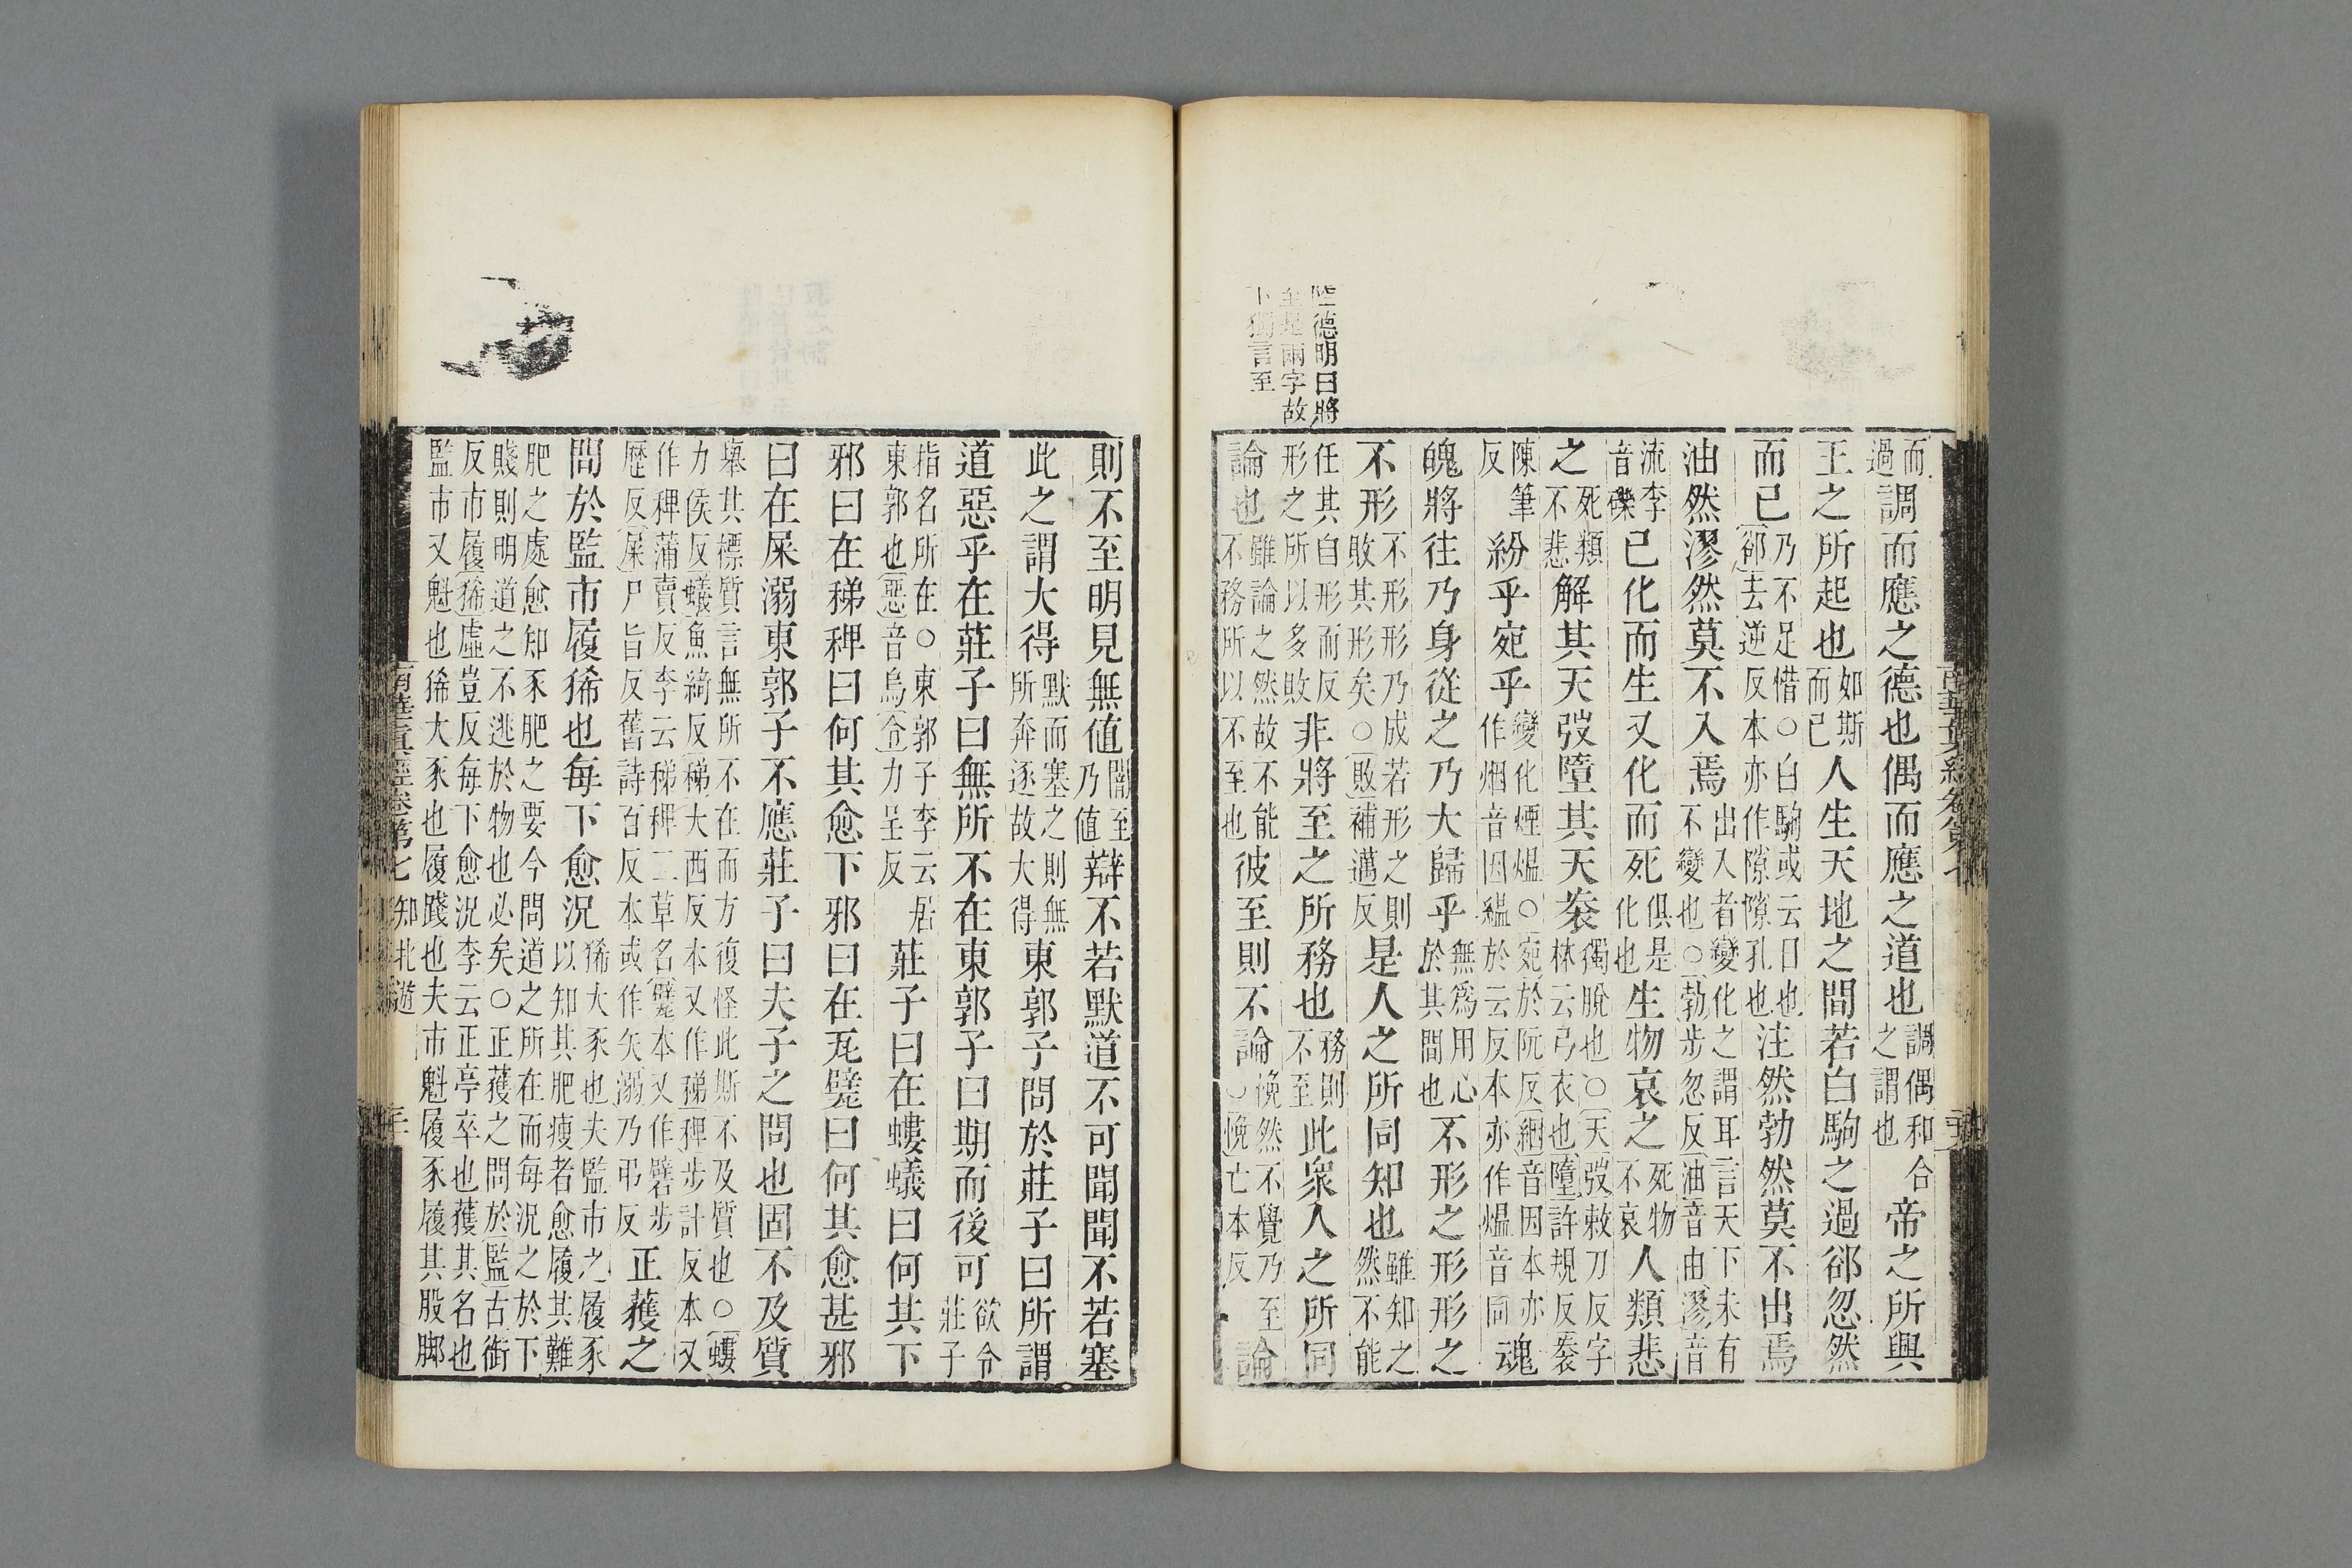 陸德明曰將
至是兩字故
下獨言至
而
過調而應之德也偶而應之道也調偶和合
之謂也帝之所興
王之所起也如斯
而已人生天地之間若白駒之過郤忽然
而已乃不足惜○白駒或云日也
郤去逆反本亦作隙隙孔也注然勃然莫不出焉
油然漻然莫不入焉出入者變化之謂耳言天下未有
不變也○勃步忽反油音由漻音
流李
音礫已化而生又化而死俱是
化也生物哀之死物
不哀人類悲
之死類
不悲解其天弢墮其天袠獨脫也○天弢敕刀反字
林云弓衣也墮許規反袠
陳筆
反紛乎宛乎變化烟熅○宛於阮反絪音因本亦
作烟音因縕於云反本亦作熅音同魂
魄將往乃身從之乃大歸乎無為用心
於其間也不形之形形之
不形不形形乃成若形之則
敗其形矣○敗補邁反是人之所同知也雖知之
然不能
任其自形而反
形之所以多敗非將至之所務也務則
不至此眾人之所同
論也雖論之然故不能
不務所以不至也彼至則不論悗然不覺乃至
○悗亡本反論
則不至明見無值闇至
乃值辯不若默道不可聞聞不若塞
此之謂大得默而塞之則無
所奔逐故大得東郭子問於莊子曰所謂
道惡乎在莊子曰無所不在東郭子曰期而後可欲令
莊子
指名所在○東郭子李云居
東郭也惡音烏令力呈反莊子曰在螻蟻曰何其下
邪曰在稊稗曰何其愈下邪曰在瓦甓曰何其愈甚邪
曰在屎溺東郭子不應莊子曰夫子之問也固不及質
舉其標質言無所不在而方復怪此斯不及質也○螻
力侯反蟻魚綺反稊大西反本又作稊稗步計反本又
作稗蒲賣反李云稊稗二草名甓本又作礕步
歷反屎尸旨反舊詩百反本或作矢溺乃弔反正獲之
問於監市履狶也每下愈況狶大豕也夫監市之履豕
以知其肥瘦者愈履其難
肥之處愈知豕肥之要今問道之所在而每況之於下
賤則明道之不逃於物也必矣○正獲之問於監古銜
反市履狶虛豈反每下愈況李云正亭卒也獲其名也
監市又魁也狶大豕也履踐也夫市魁履豕履其股腳
南華真經卷第七 知北遊